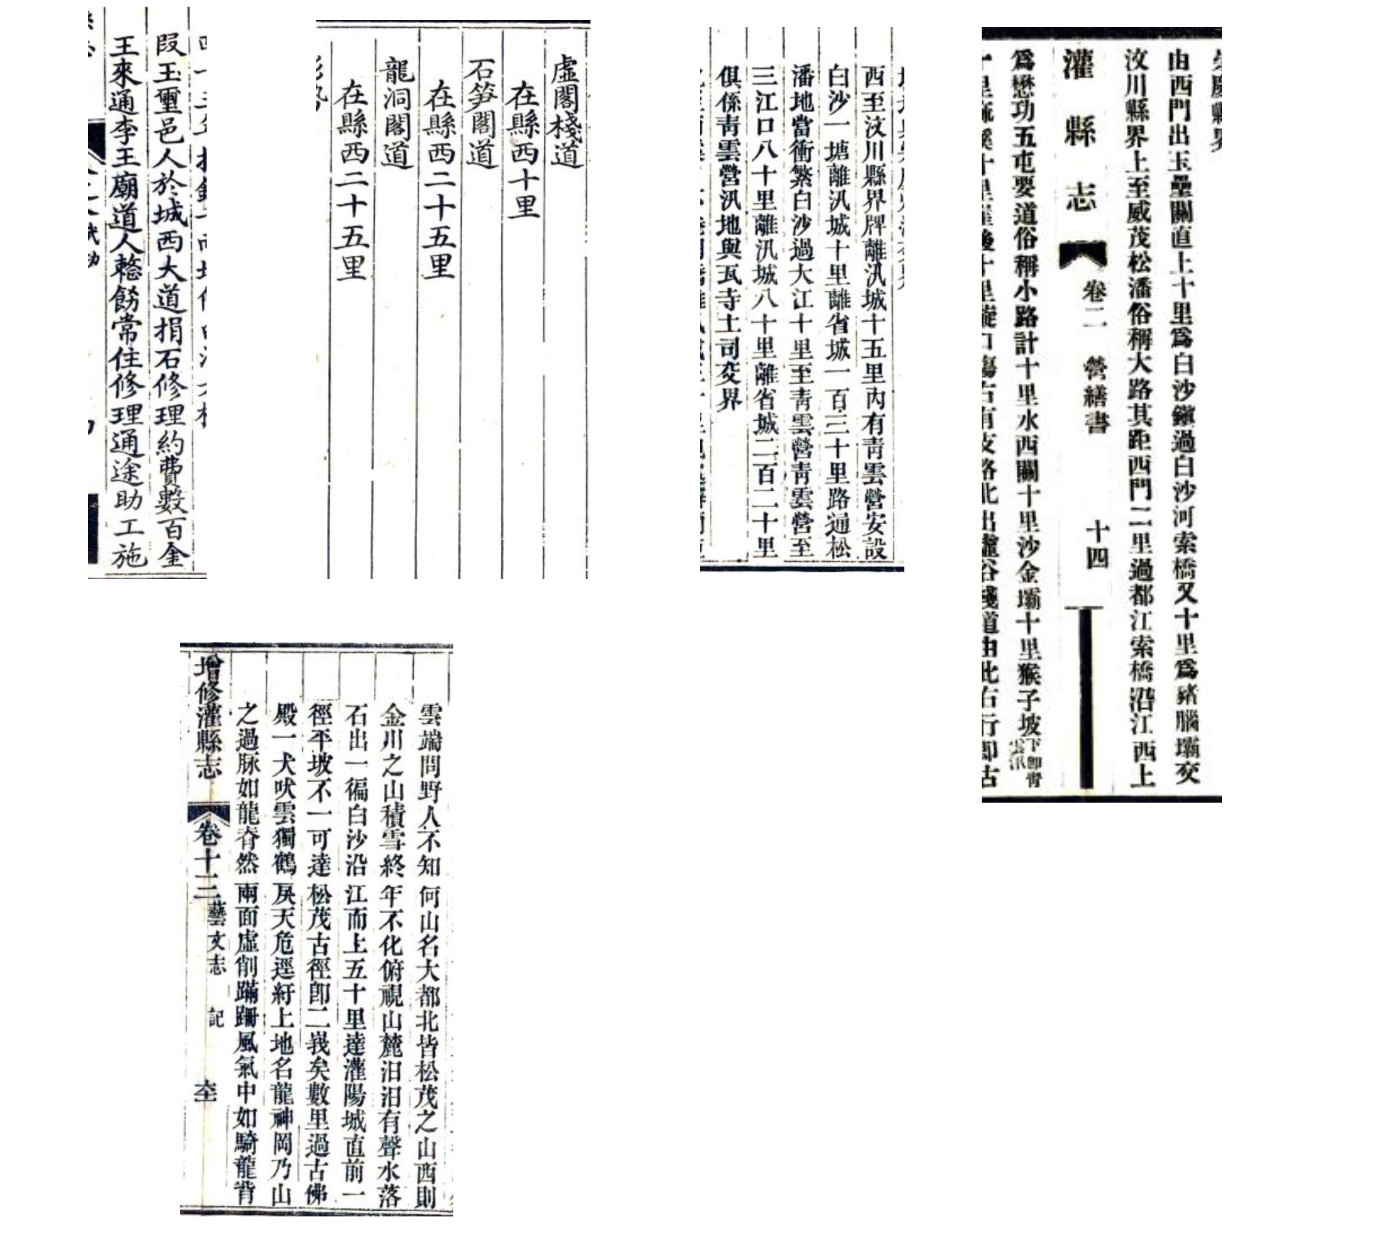 段玉璽邑人於城西大道捐石修理約費數百金
王來通李王廟道人整飭常住修理通途助工施
虛閣棧道
在縣西十里
石笋閣道
在縣西二十五里
龍洞閣道
在縣西二十五里
西至汶川縣界牌離汛城十五里內有靑雲營安設
白沙一塘離汛城十里離省城一百三十里路通松
潘地當衝繁白沙過大江十里至靑雲營靑雲營至
三江口八十里離汛城八十里離省城二百二十里
俱係靑雲營汛地與瓦寺土司交界
由西門出玉壘關直上十里爲白沙鎭過白沙河索橋又十里爲豬腦壩交
汶川縣界上至威茂松潘俗稱大路其距西門二里過都江索橋沿江西上
灌縣志 卷二 營繕書 十四
爲懋功五屯要道俗稱小路計十里水西關十里沙金壩十里猴子坡下卽靑雲汛
雲端問野人不知何山名大都北皆松茂之山西則
金川之山積雪終年不化俯視山麓汨汨有聲水落
石出一徧白沙沿江而上五十里達灌陽城直前一
徑平坡不一可達松茂古徑卽二峩矣數里過古佛
殿一犬吠雲獨鶴戾天危逕紆上地名龍神岡乃山
之過脉如龍脊然兩面虛削蹣跚風氣中如騎龍背
增修灌縣志 卷十三 藝文志 記